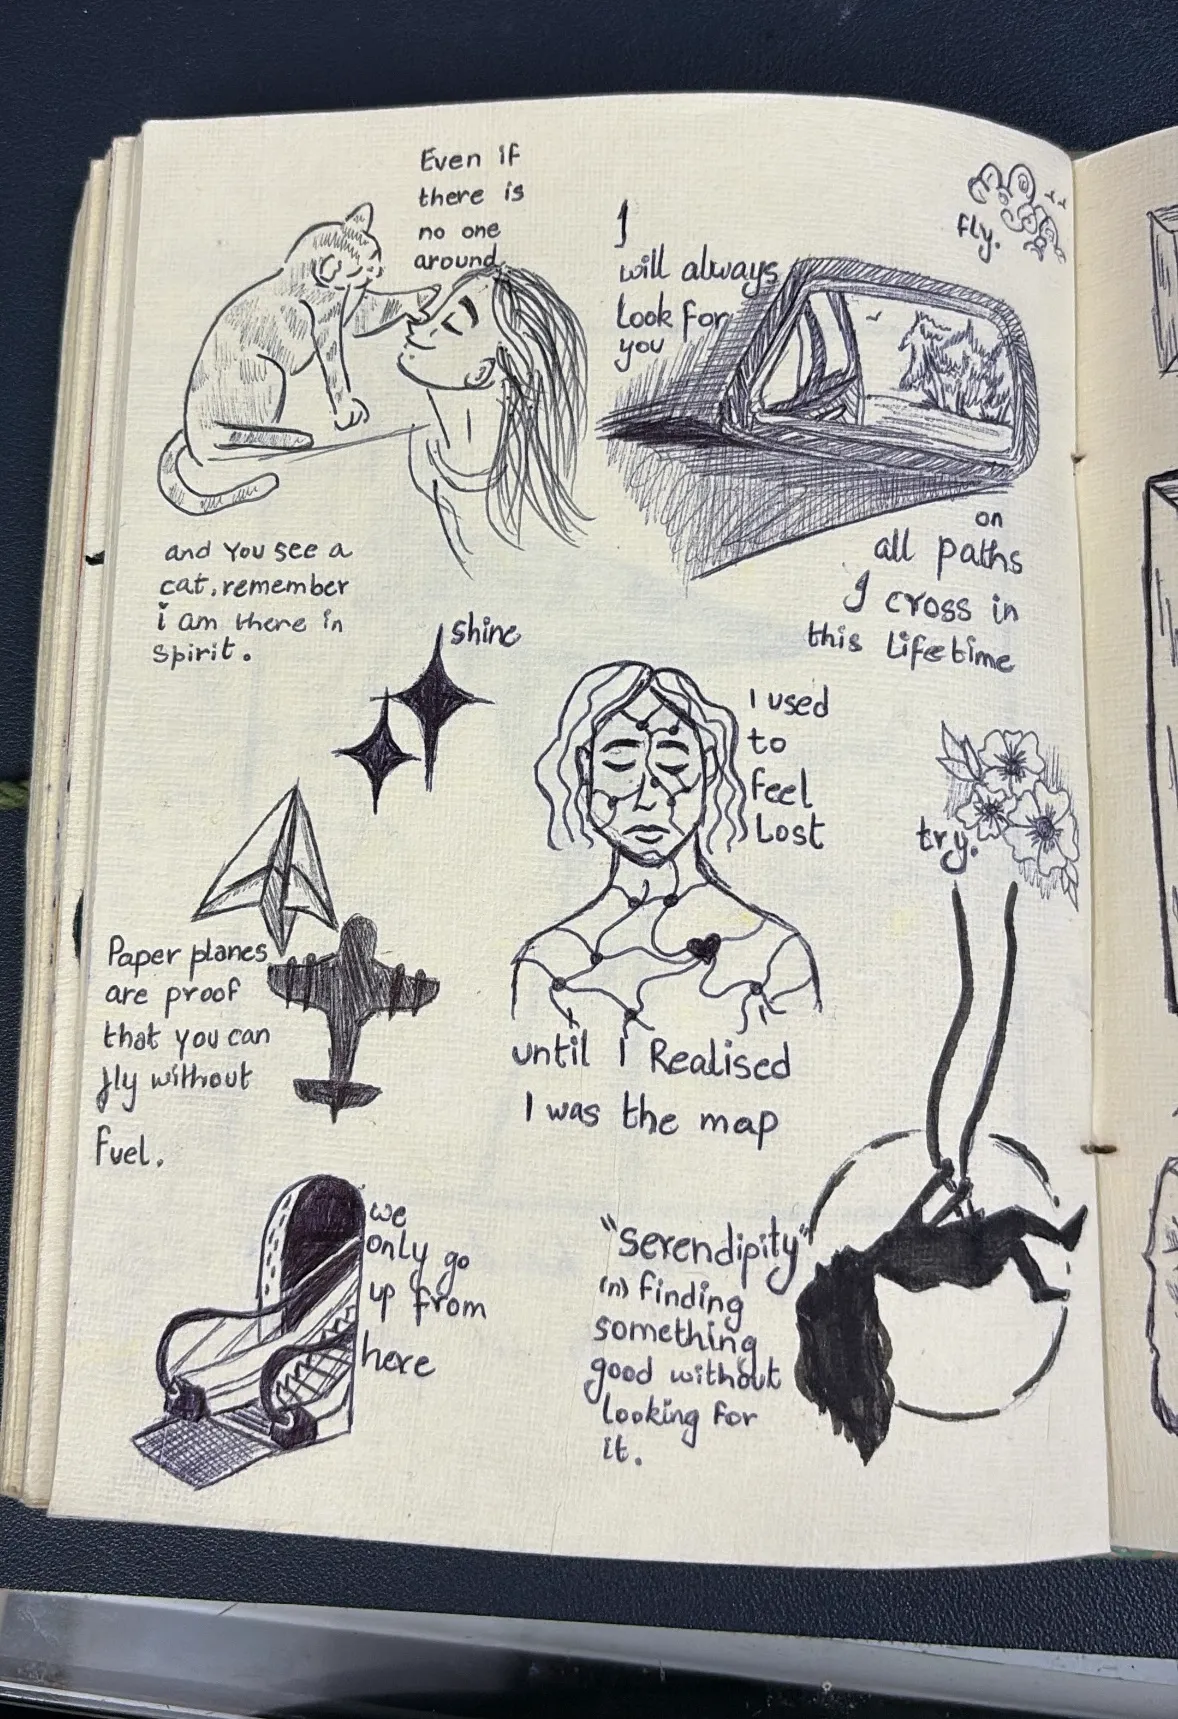 Even if
there is
no one
around
and you see a
cat, remember
i am there in
spirit.
I
will always
look for
you
on
all paths
I cross in
this lifetime
fly.
shine
I used
to
feel
lost
until I Realised
I was the map
try.
Paper planes
are proof
that you can
fly without
fuel.
we
only go
up from
here
"Serendipity"
(n) finding
something
good without
looking for
it.